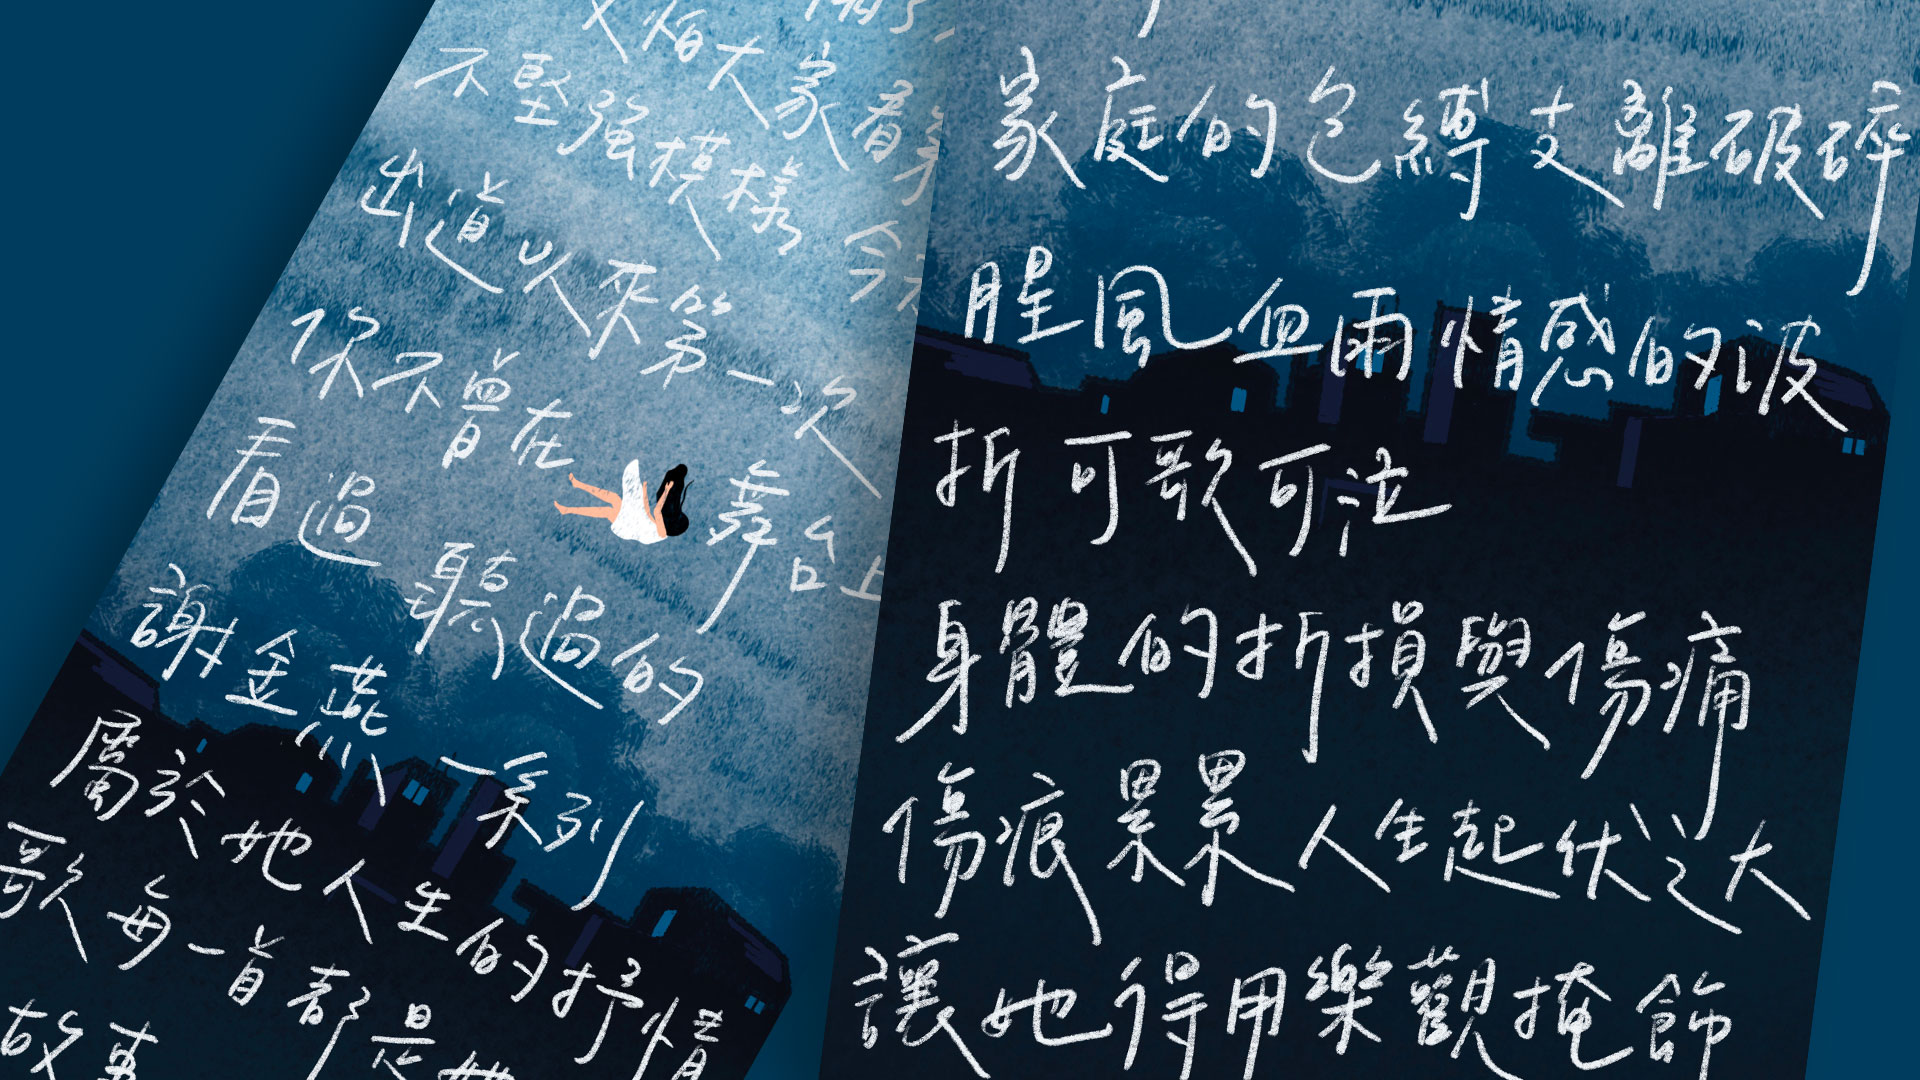 又怕大家看穿
不堅強模樣 今天
出道以來第一次
你不曾在 舞台上
看過 聽過的
謝金燕 一系列
屬於她人生的抒情
歌每一首都是她
故事
家庭的包縛支離破碎
腥風血雨情感的波
折 可歌可泣
身體的折損與傷痛
傷痕累累人生起伏之大
讓她得用樂觀掩飾